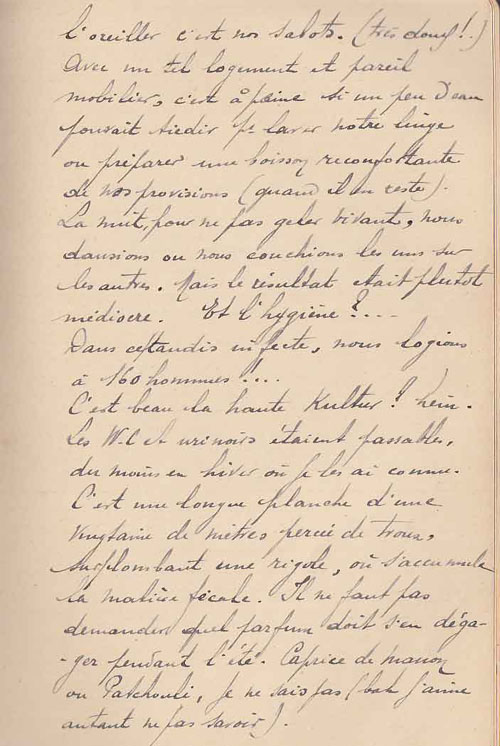 l'oreiller c'est nos sabots. (très doux!.)
Avec un tel logement et pareil
mobilier, c'est à peine si un peu d'eau
pouvait tiédir pr laver notre linge
ou préparer une boisson reconfortante
de nos provisions (quand il en reste).
La nuit, pour ne pas geler vivant, nous
dansions ou nous couchions les uns sur
les autres. Mais le résultat était plutôt
médiocre. Et l'hygiène?...
Dans ce taudis infecte, nous logions
à 160 hommes!...
C'est beau la haute Kultur? hein.
Les W-C et urinoirs étaient passables,
du moins en hiver où je les ai connu.
C'est une longue planche d'une
vingtaine de mètres percée de trous,
surplombant une rigole, où s'accumule
la matière fécale. Il ne faut pas
demander quel parfum doit s'en déga-
-ger pendant l'été. Caprice de manon
ou Patchouli, je ne sais pas (bah j'aime
autant ne pas savoir).